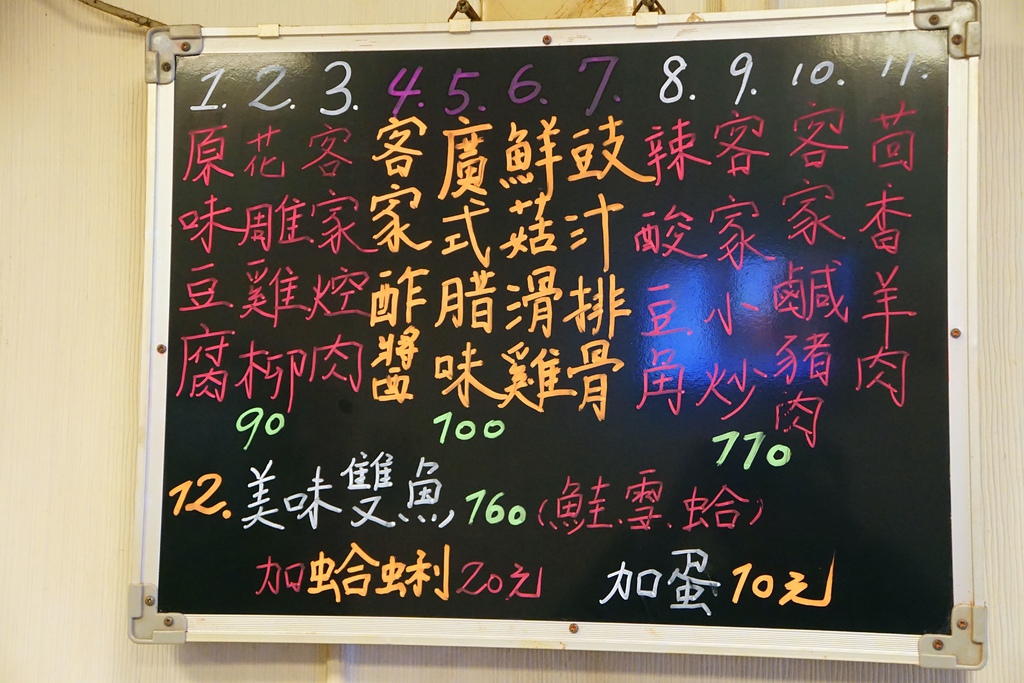 1. 原味豆腐
2. 花雕雞柳
3. 客家焢肉
90
4. 客家酢醬
5. 廣式腊味
6. 鮮菇滑雞
7. 豉汁排骨
100
8. 辣酸豆角
9. 客家小炒
10. 客家鹹豬肉
11. 茴香羊肉
110
12. 美味雙魚 160 (鮭.雪.蛤)
加蛤蜊20元
加蛋10元